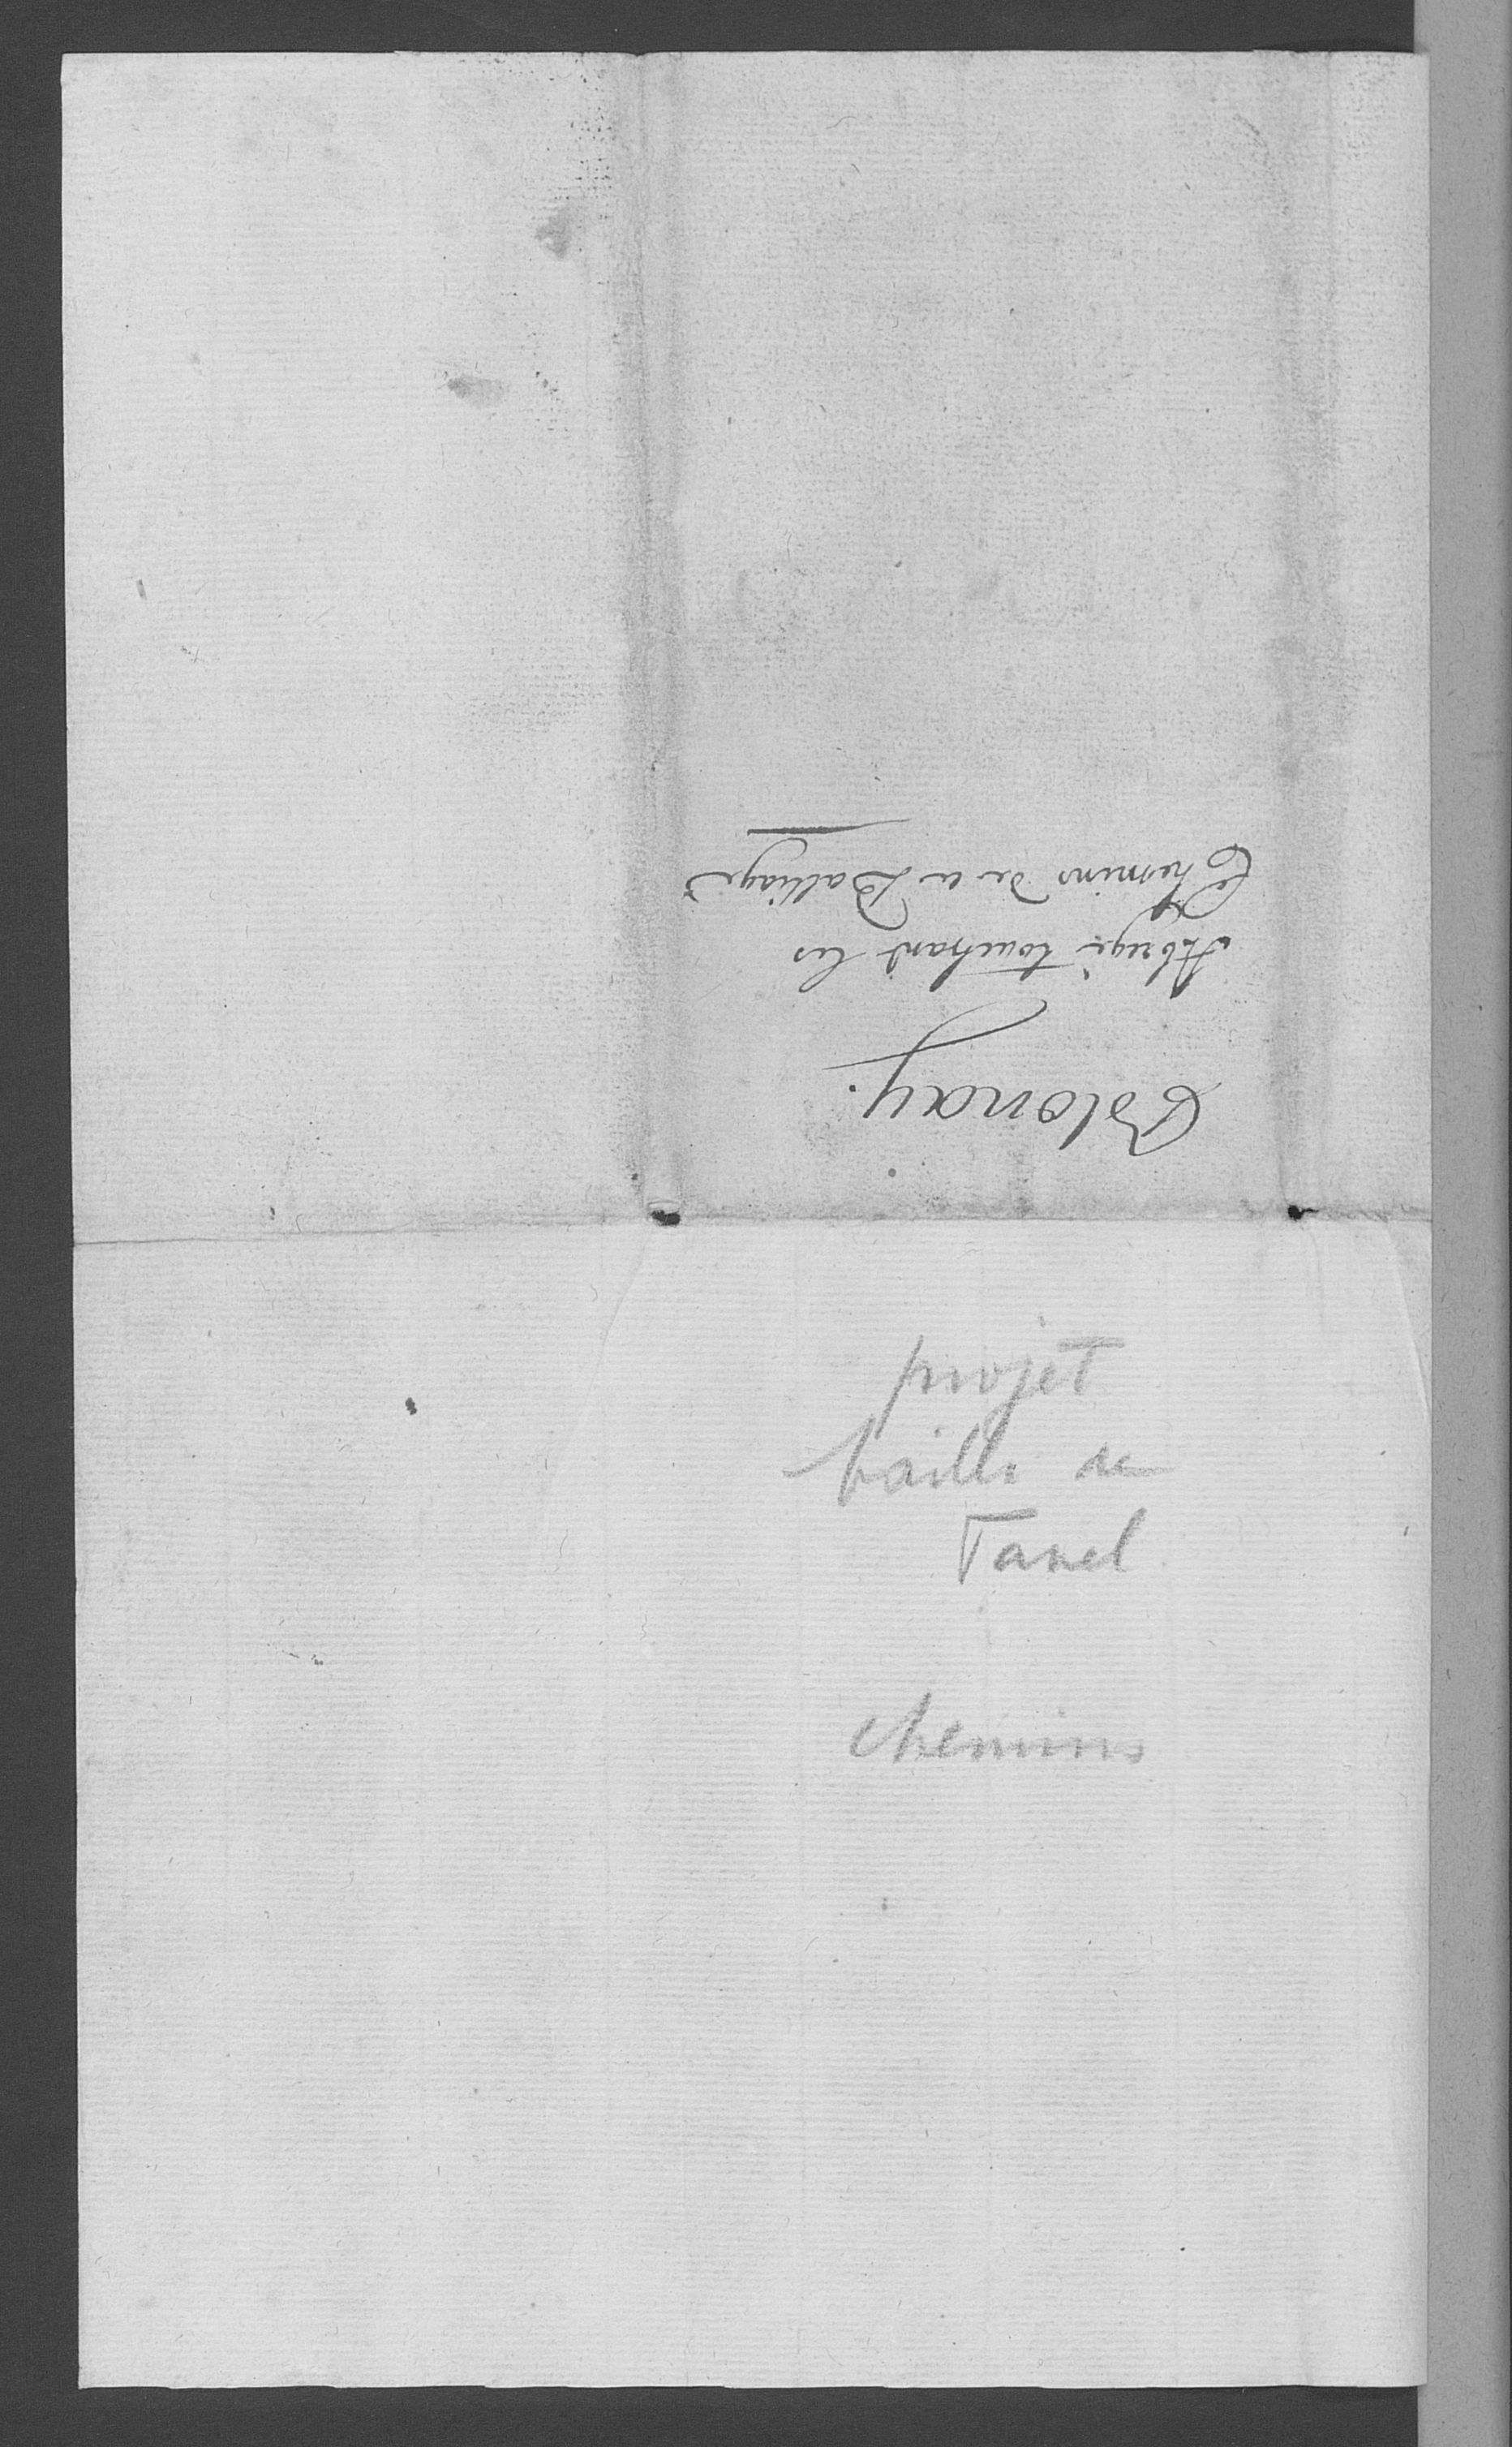 Blonay.
Abregé touchant les
Chemins de ce Balliage
projet
bailli de
Tavel
chemins